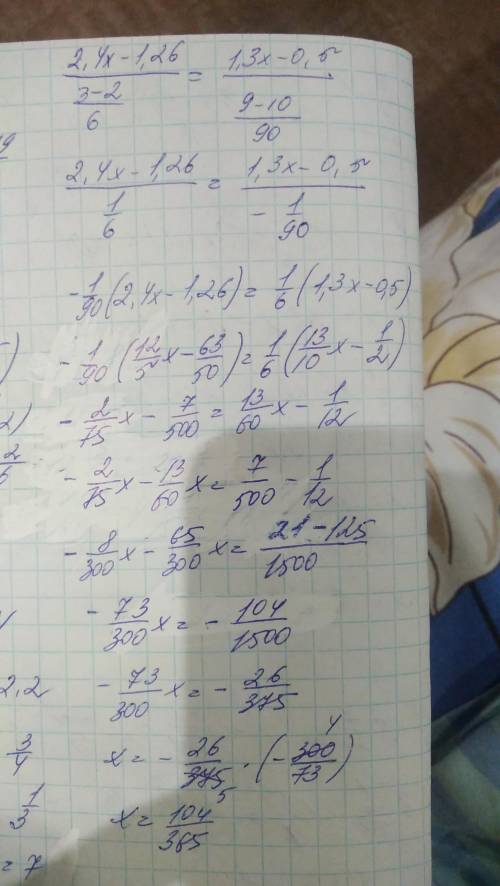 (2,4x-1,26)/((3-2)/6) = (1,3x-0,5)/((9-10)/90)
(2,4x-1,26)/(1/6) = (1,3x-0,5)/(-1/90)
-1/90(2,4x-1,26)=1/6(1,3x-0,5)
) -1/90(12/5x-63/50)=1/6(13/10x-1/2)
2) -2/75x-7/500=13/60x-1/12
2/5 -2/75x-13/60x=7/500-1/12
-8/300x-65/300x=(21-125)/1500
-73/300x=-104/1500
2,2 -73/300x=-26/375
3/4 x=-26/375 5·(-300 4/73)
1/3 x=104/365
=7